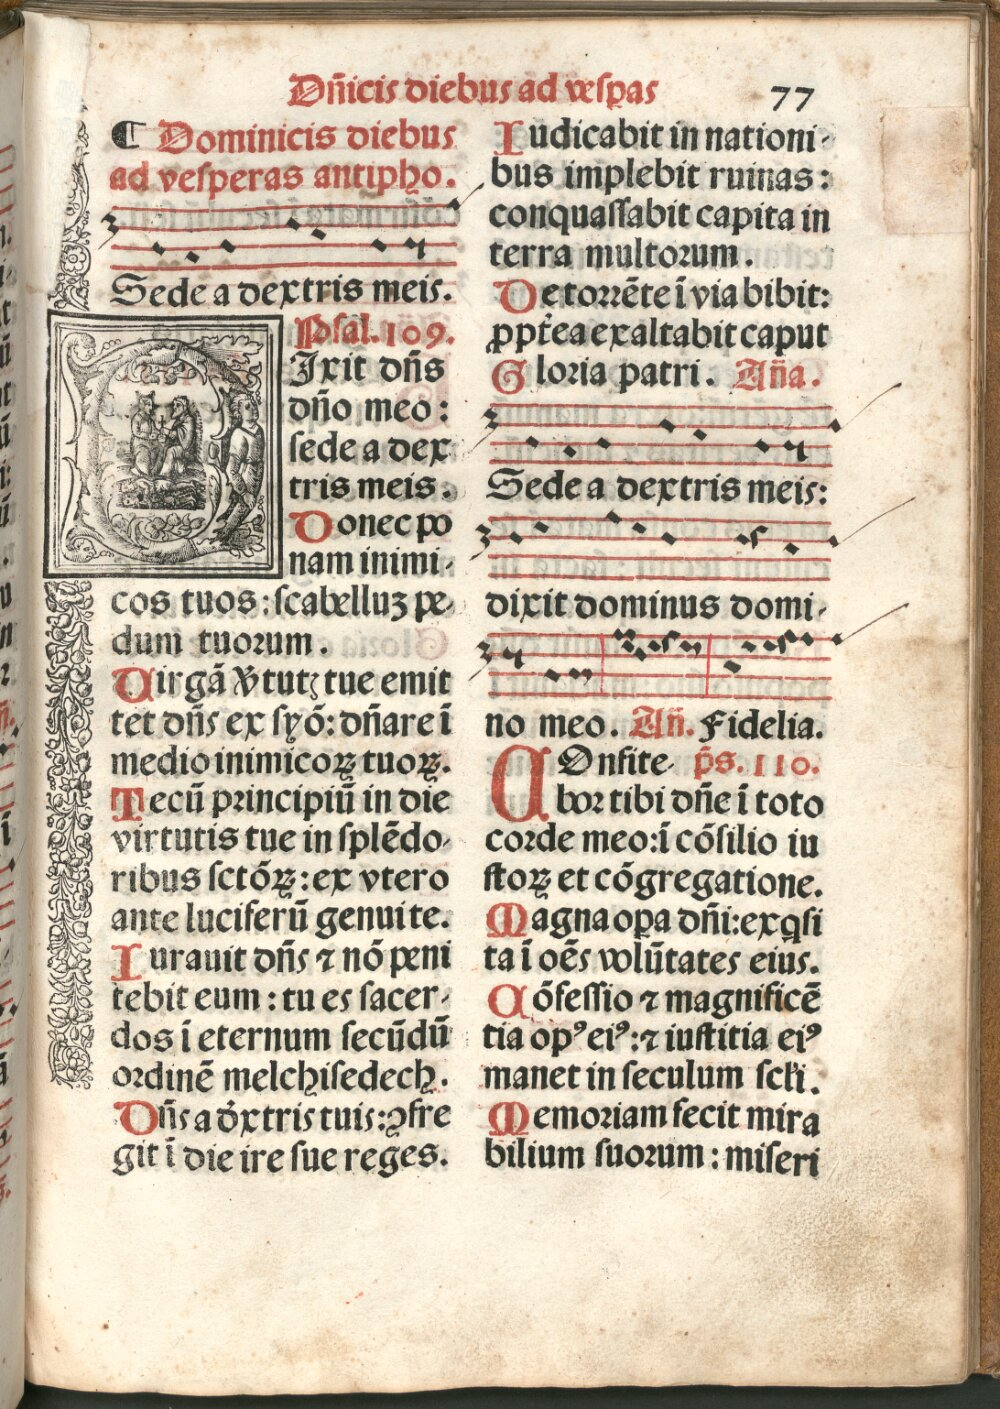 Dñicis diebus ad vesp̱as 77
¶ Dominicis diebus
ad vesperas antipho.
Sede a dextris meis.
Psal. 109.
DIxit dñs
dño meo:
sede a dex
tris meis.
Donec po
nam inimi-
cos tuos: scabelluʒ pe-
dum tuorum.
Uirgā v̓tutꝭ tue emit
tet dñs ex syō: dñare ī
medio inimicoꝝ tuoꝝ.
Tecū principiū in die
virtutis tue in splēdo-
ribus sctōꝝ: ex vtero
ante luciferū genui te.
Iurauit dñs ⁊ nō peni
tebit eum: tu es sacer-
dos ī eternum secūdū
ordinē melchisedech.
Dñs a d̓xtris tuis: ꝯfre
git ī die ire sue reges.
Iudicabit in nationi-
bus implebit ruinas:
conquassabit capita in
terra multorum.
De torrēte ī via bibit:
ꝓpt̓ea exaltabit caput
Gloria patri. Aña.
Sede a dextris meis:
dixit dominus domi-
no meo. Añ. Fidelia.
COnfite- p̄s. 110.
bor tibi dñe ī toto
corde meo: ī cōsilio iu
stoꝝ et cōgregatione.
Magna oꝑa dñi: exq̇si
ta ī oēs volūtates eius.
Cōfessio ⁊ magnificē
tia opꝰ eiꝰ: ⁊ iustitia eiꝰ
manet in seculum scłi.
Memoriam fecit mira
bilium suorum: miseri